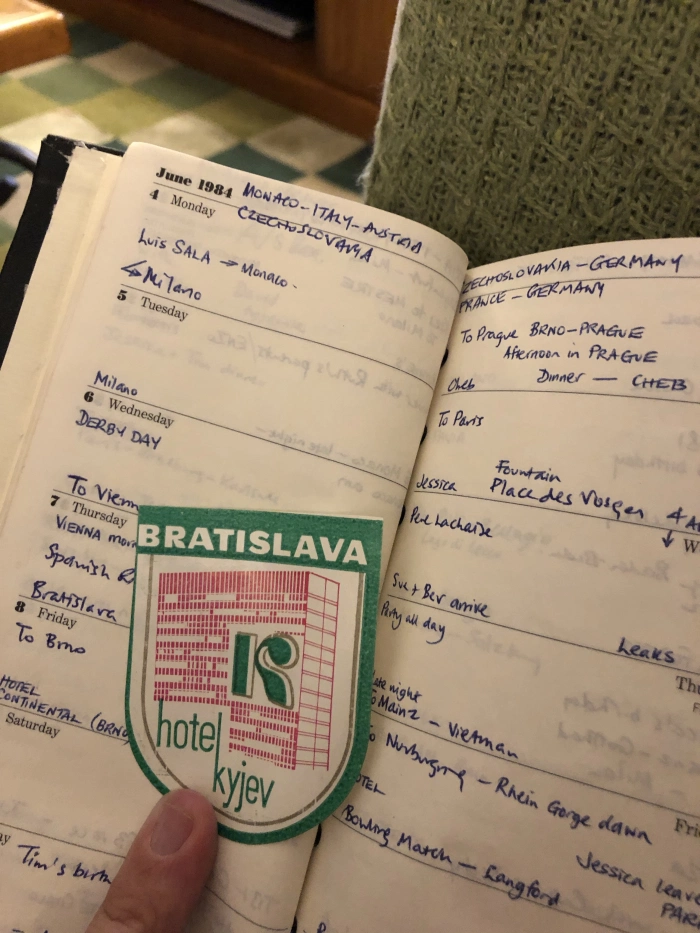 June 1984 MONACO - ITALY - AUSTRIA
4 Monday CZECHOSLOVAKIA
Luis SALA → Monaco.
Milano
5 Tuesday
Milano
6 Wednesday
DERBY DAY
To Vienn
7 Thursday
VIENNA morn
Spanish R
Bratislava
8 Friday
To Brno
HOTEL
CONTINENTAL (BRNO
Saturday
Tim's birth
BRATISLAVA
K
hotel
kyjev
CZECHOSLOVAKIA - GERMANY
FRANCE - GERMANY
To Prague BRNO - PRAGUE
Afternoon in PRAGUE
Cheb Dinner — CHEB
To Paris
Fountain
Jessica Place des Vosges 4
↓ W
Père Lachaise
Sue + Bev arrive
Party all day
Leaks
Thu
late night
To Mainz - Vietman
To Nurburgring - Rhein Gorge dawn
HOTEL
Fri
Bowling Match - Langford
Jessica leave
PAR